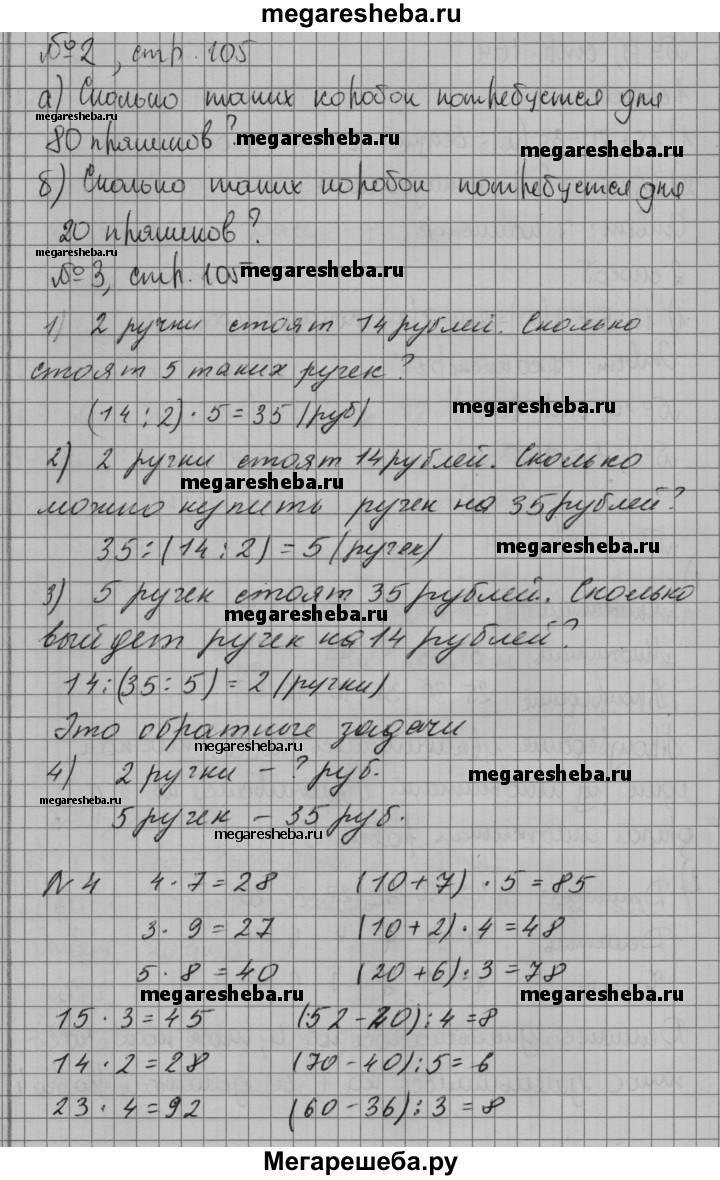 megaresheba.ru
№2, стр. 105
а) Сколько таких коробок потребуется для
80 пряников?
megaresheba.ru
megaresheba.ru
megaresheba.ru
б) Сколько таких коробок потребуется для
20 пряников?
megaresheba.ru
№3, стр. 105
megaresheba.ru
1) 2 ручки стоят 14 рублей. Сколько
стоят 5 таких ручек?
(14 : 2) · 5 = 35 (руб)
megaresheba.ru
2) 2 ручки стоят 14 рублей. Сколько
megaresheba.ru
можно купить ручек на 35 рублей?
35 : (14 : 2) = 5 (ручек)
megaresheba.ru
3) 5 ручек стоят 35 рублей. Сколько
megaresheba.ru
выйдет ручек на 14 рублей?
14 : (35 : 5) = 2 (ручки)
Это обратные задачи
megaresheba.ru
4) 2 ручки – ? руб.
megaresheba.ru
megaresheba.ru
5 ручек – 35 руб.
megaresheba.ru
N 4 4 · 7 = 28 (10 + 7) · 5 = 85
3 · 9 = 27 (10 + 2) · 4 = 48
5 · 8 = 40 (20 + 6) : 3 = 78
megaresheba.ru
megaresheba.ru
15 · 3 = 45 (52 – 20) : 4 = 8
14 · 2 = 28 (70 – 40) : 5 = 6
23 · 4 = 92 (60 – 36) : 3 = 8
Мегарешеба.ру